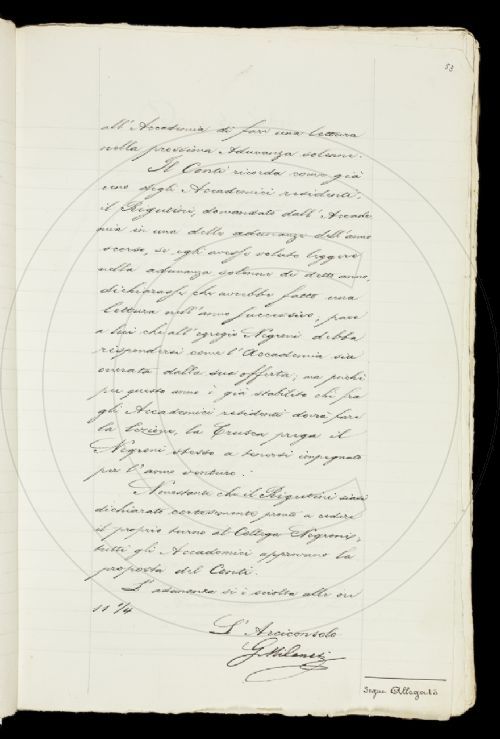 53
all'Accademia di fare una lettura
nella prossima Adunanza solenne.
Il Conti ricorda come già
uno degli Accademici residenti,
il Rigutini, domandato dall'Accade-
mia in una delle adunanze dell'anno
scorso, se egli avesse voluto leggere
nella adunanza solenne di detto anno,
dichiarasse che avrebbe fatto una
lettura nell'anno successivo, pare
a lui che all'egregio Negroni debba
rispondersi come l'Accademia sia
onorata dalla sua offerta; ma poichè
per questo anno è già stabilito chi fra
gli Accademici residenti dovrà fare
la lezione, la Crusca prega il
Negroni stesso a tenersi impegnato
per l'anno venturo.
Nonostante che il Rigutini siasi
dichiarato cortesemente pronto a cedere
il proprio turno al Collega Negroni,
tutti gli Accademici approvano la
proposta del Conti.
L'adunanza si è sciolta alle ore
11 1/4
L'Arciconsolo
G. Milanesi
Segue Allegato